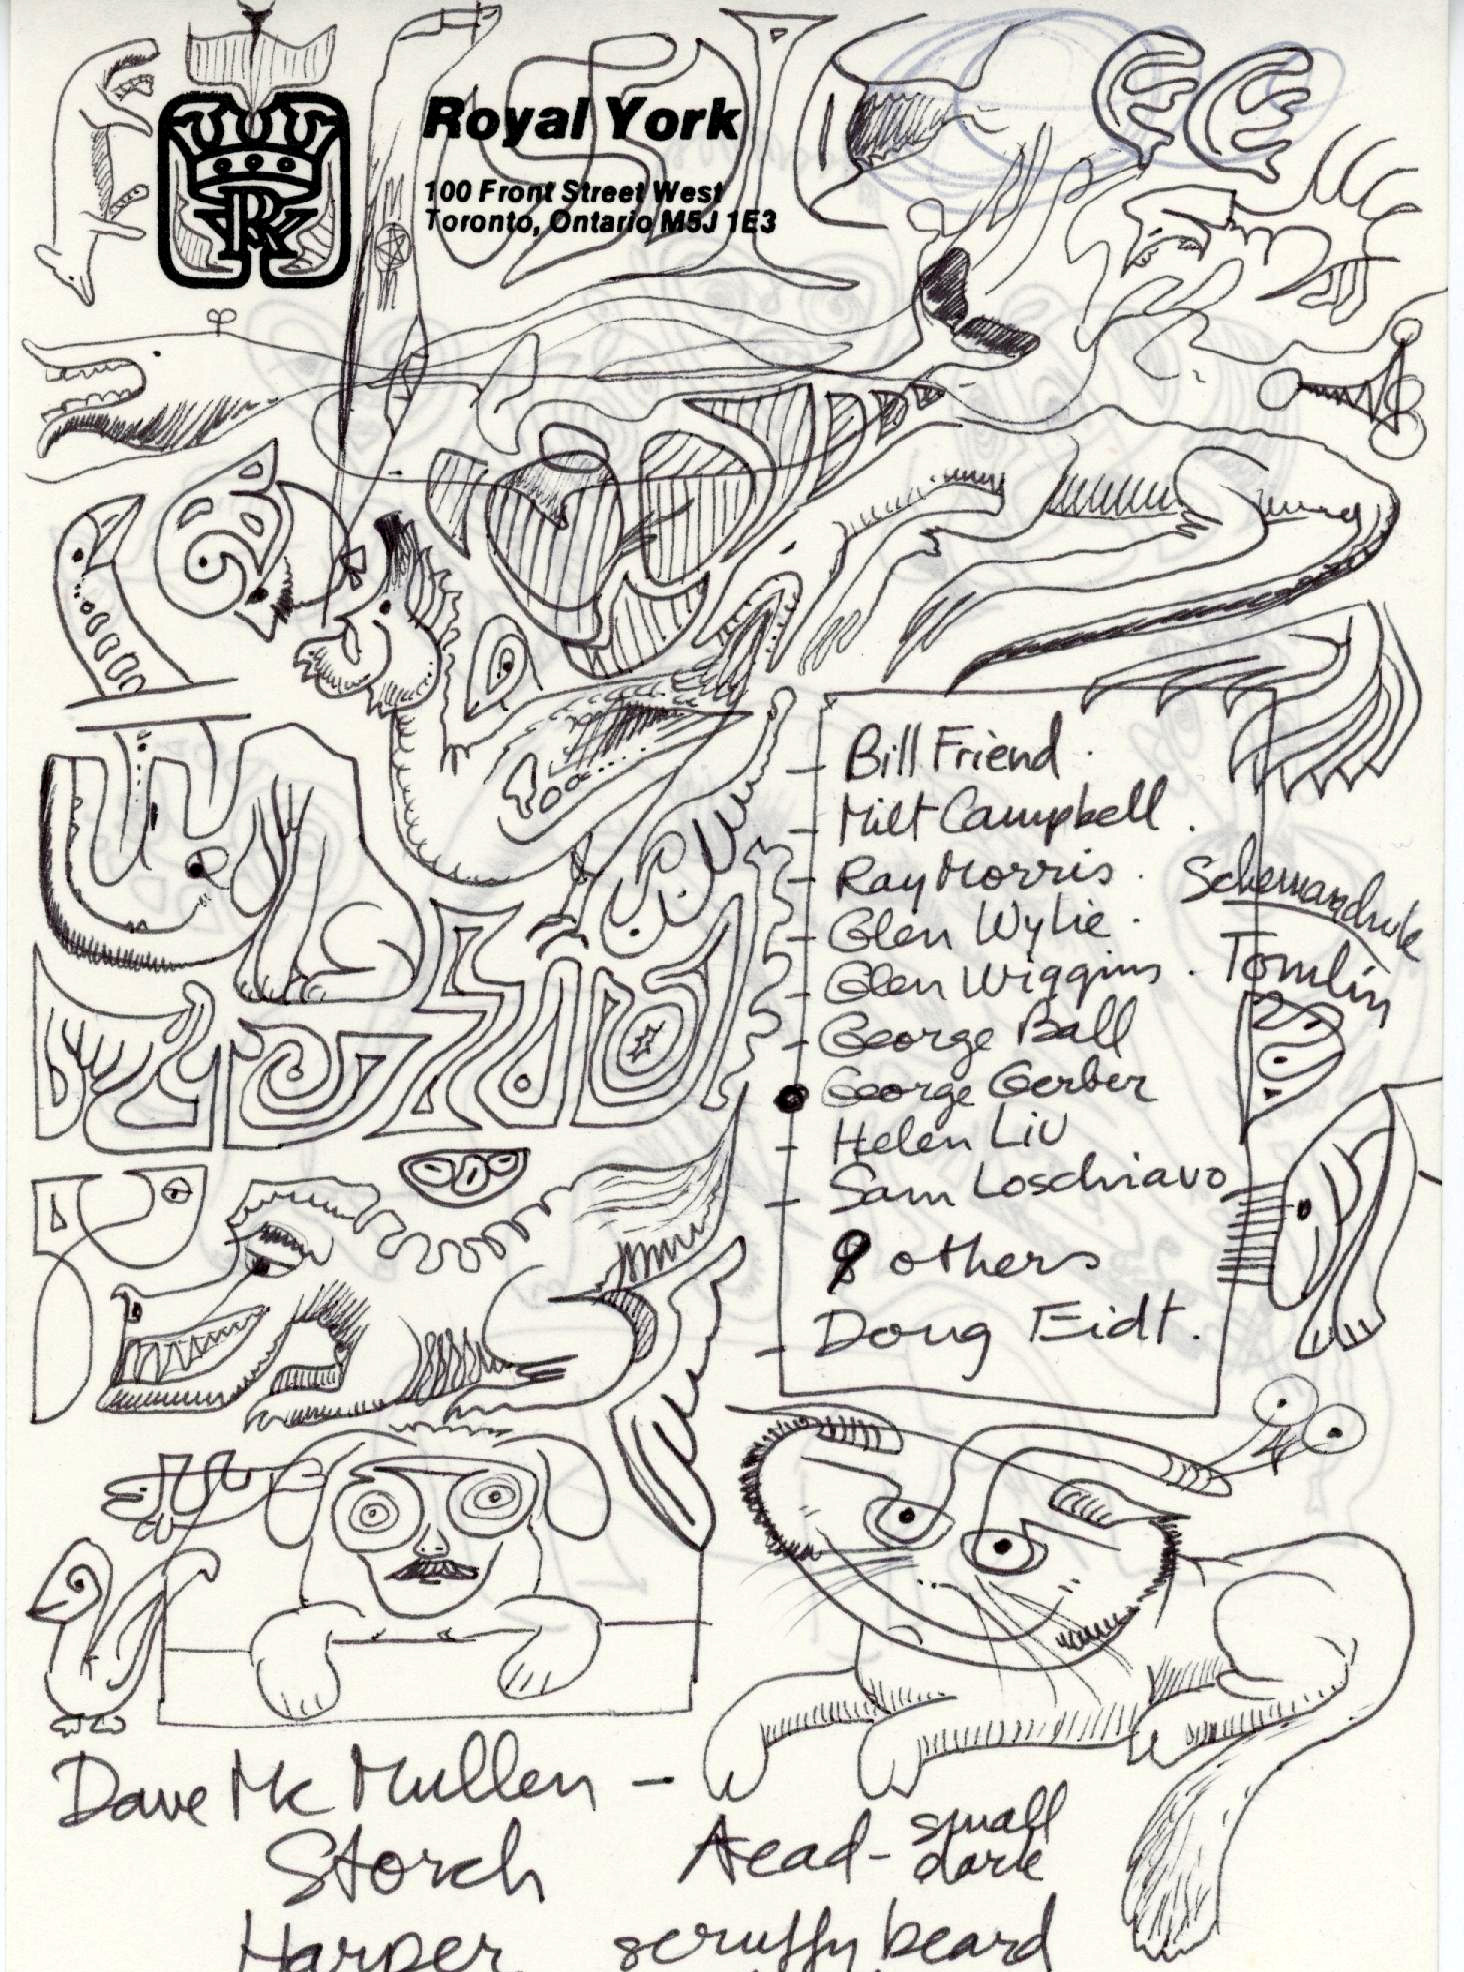 Royal York
100 Front Street West
Toronto, Ontario M5J 1E3
Bill Friend
Milt Campbell
Ray Morris
Glen Wylie
Glen Wiggins
George Ball
George Gerber
Helen Liu
Sam Loschiavo
Tomlin
8 others
Doug Eidt.
Dave McMullen -
Storch
Harper
small
dark
scruffy beard